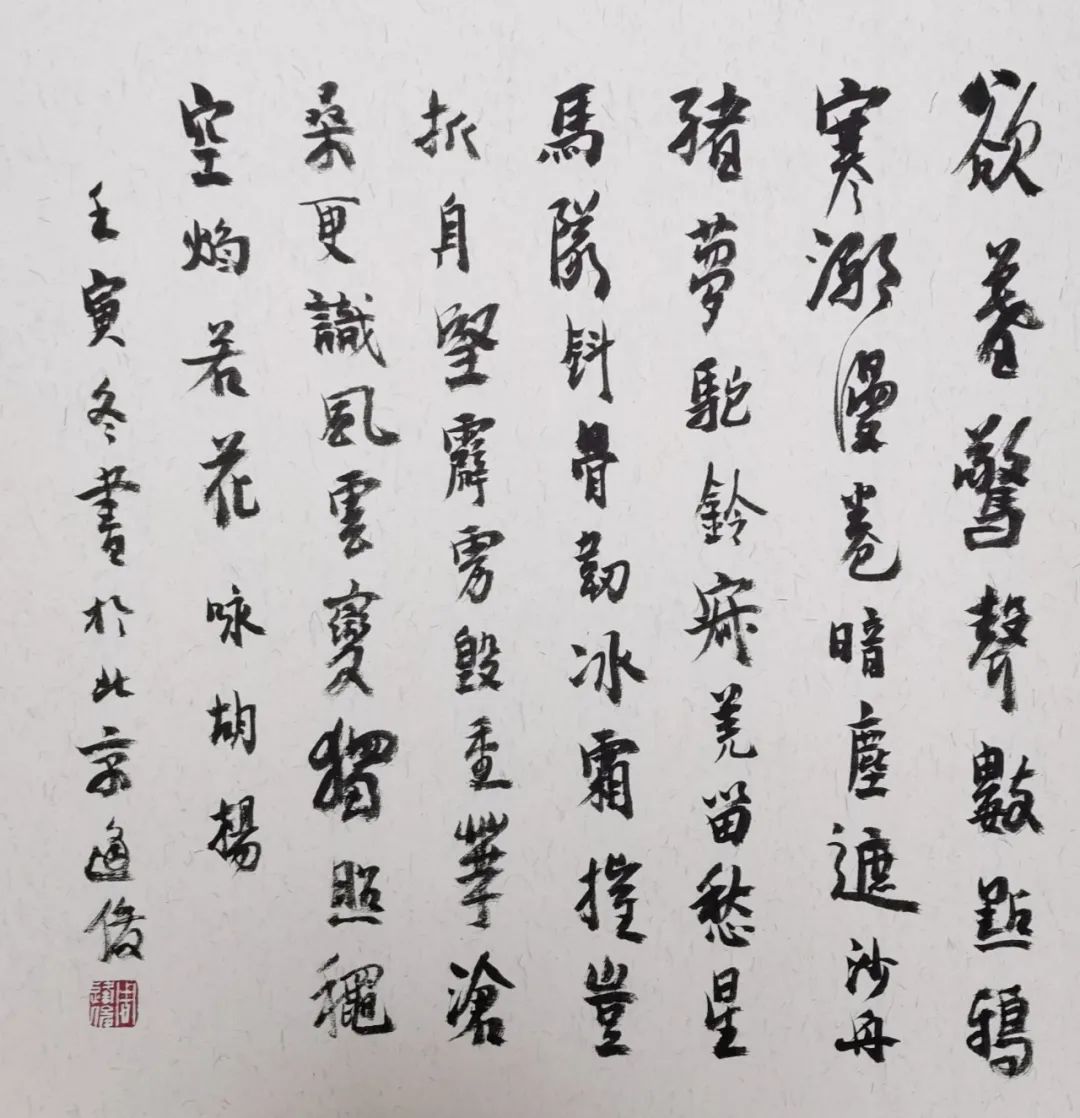 欲暮驚聲數點鴉
寒潮漫卷暗塵遮沙舟
夢駝鈴寂羌笛愁星
馬隊斜骨韌冰霜摧豈
折身堅霹靂毀垂華滄
桑更識風雲變獨照穐
空焰若花 咏胡楊
壬寅冬書於北京逢俊
周逢俊